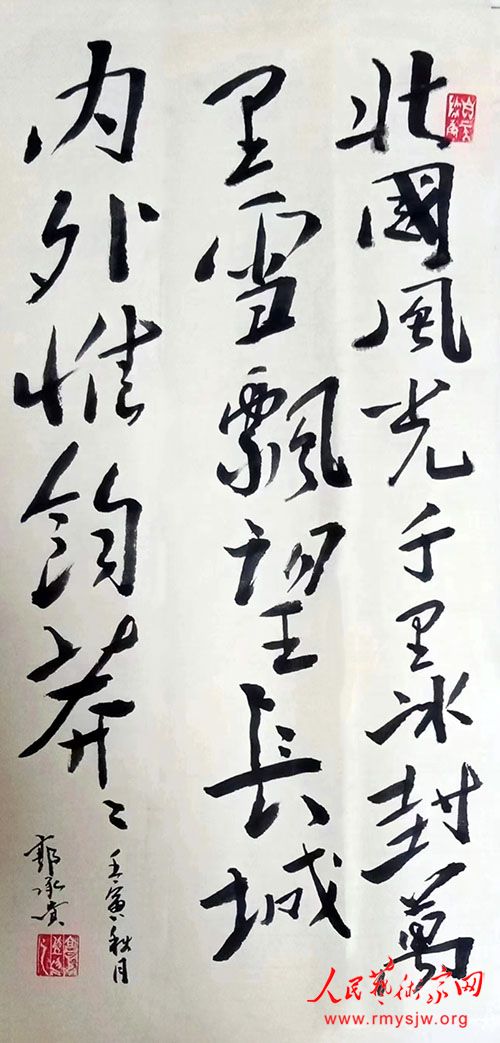 北國風光千里冰封萬
里雪飄望長城
内外惟餘莽〻
壬寅秋月
郭承
人民藝術家网
www.rmysjw.org